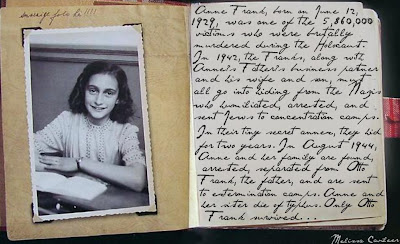 Anne Frank, born on June 12,
1929, was one of the 5,860,000
victims who were brutally
murdered during the Holocaust.
In 1942, the Franks, along with
Anne's Father's business partner
and his wife and son, must
all go into hiding from the Nazis
who humiliated, arrested, and
sent Jews to concentration camps.
In their tiny secret annex, they hid
for two years. In August 1944,
Anne and her family are found,
arrested, separated from Otto
Frank, the father, and are sent
to extermination camps. Anne and
her sister die of typhus. Only Otto
Frank survived...
Melissa